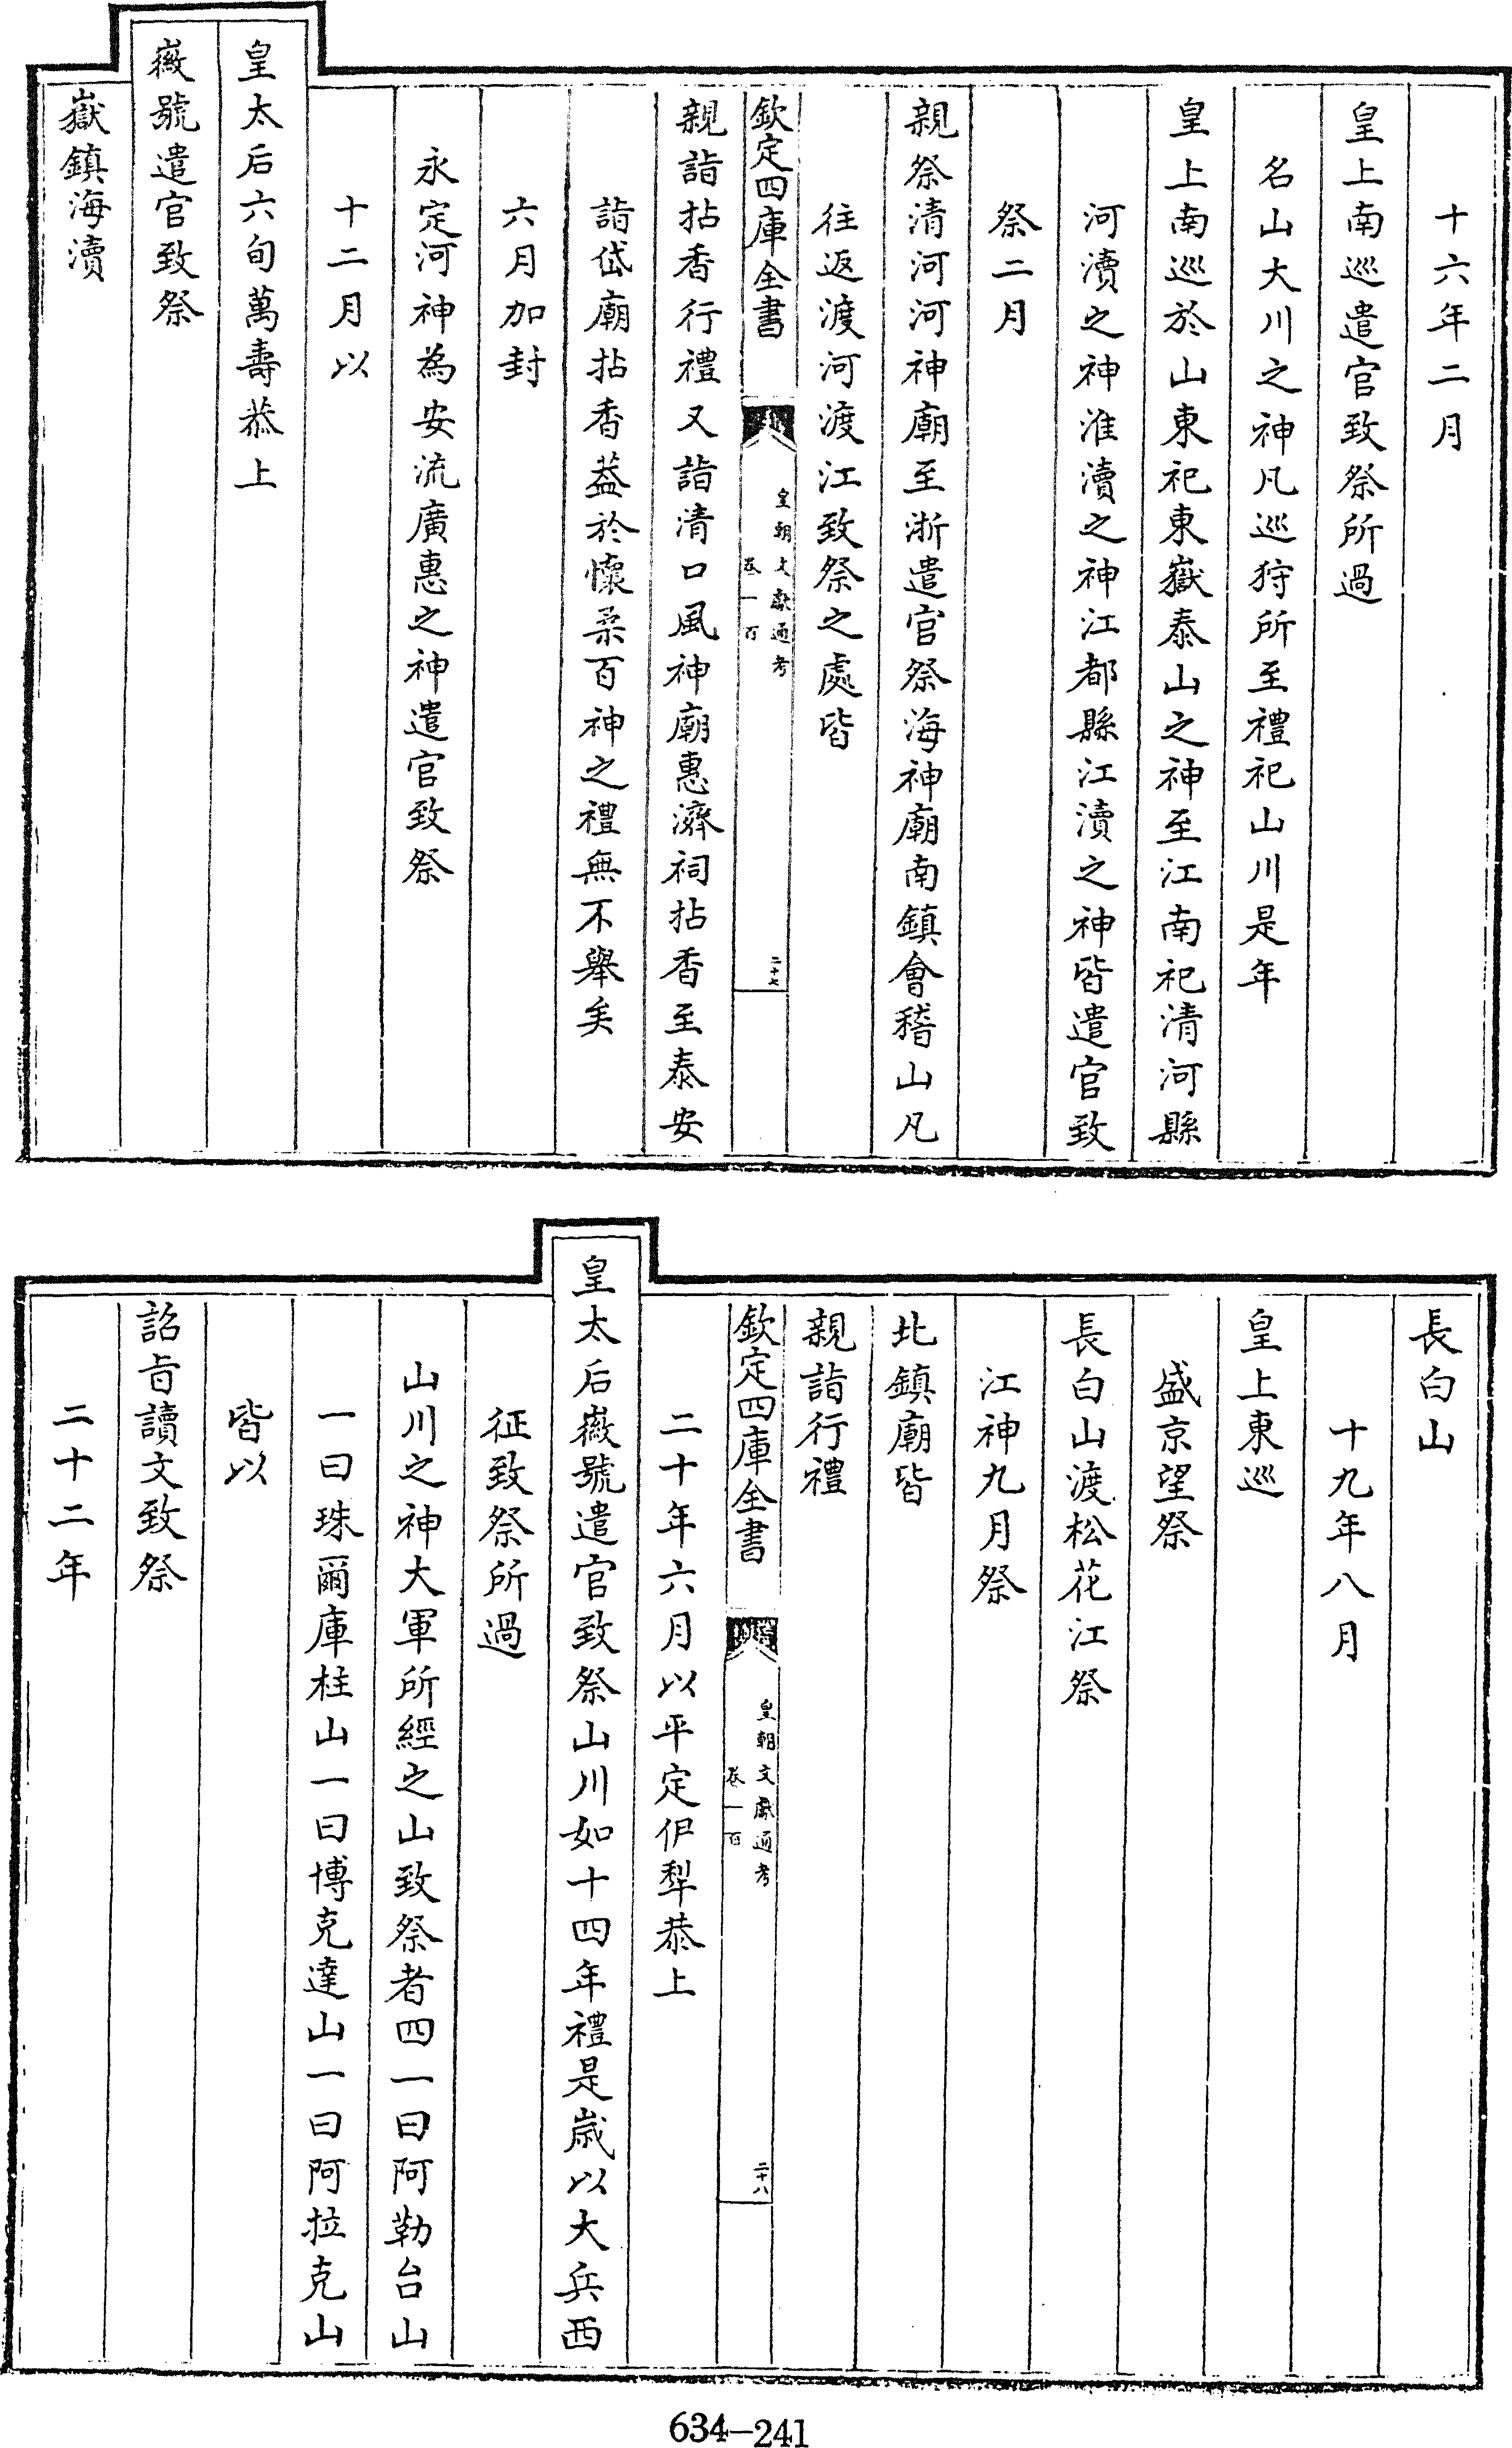 十六年二月
皇上南巡遣官致祭所過
名山大川之神凡巡狩所至禮祀山川是年
皇上南巡於山東祀東嶽泰山之神至江南祀清河縣
河瀆之神淮瀆之神江都縣江瀆之神皆遣官致
祭二月
親祭清河河神廟至浙遣官祭海神廟南鎮會稽山凡
往返渡河渡江致祭之處皆
欽定四庫全書
皇朝文獻通考
卷一百
二十七
親詣拈香行禮又詣清口風神廟惠濟祠拈香至泰安
詣岱廟拈香葢於懷柔百神之禮無不舉矣
六月加封
永定河神為安流廣惠之神遣官致祭
十二月以
皇太后六旬萬壽恭上
徽號遣官致祭
嶽鎮海瀆
長白山
十九年八月
皇上東巡
盛京望祭
長白山渡松花江祭
江神九月祭
北鎮廟皆
親詣行禮
欽定四庫全書
皇朝文獻通考
卷一百
二十八
二十年六月以平定伊犁恭上
皇太后徽號遣官致祭山川如十四年禮是歲以大兵西
征致祭所過
山川之神大軍所經之山致祭者四一曰阿勒台山
一曰珠爾庫柱山一曰博克達山一曰阿拉克山
皆以
詔旨讀文致祭
二十二年
634-241